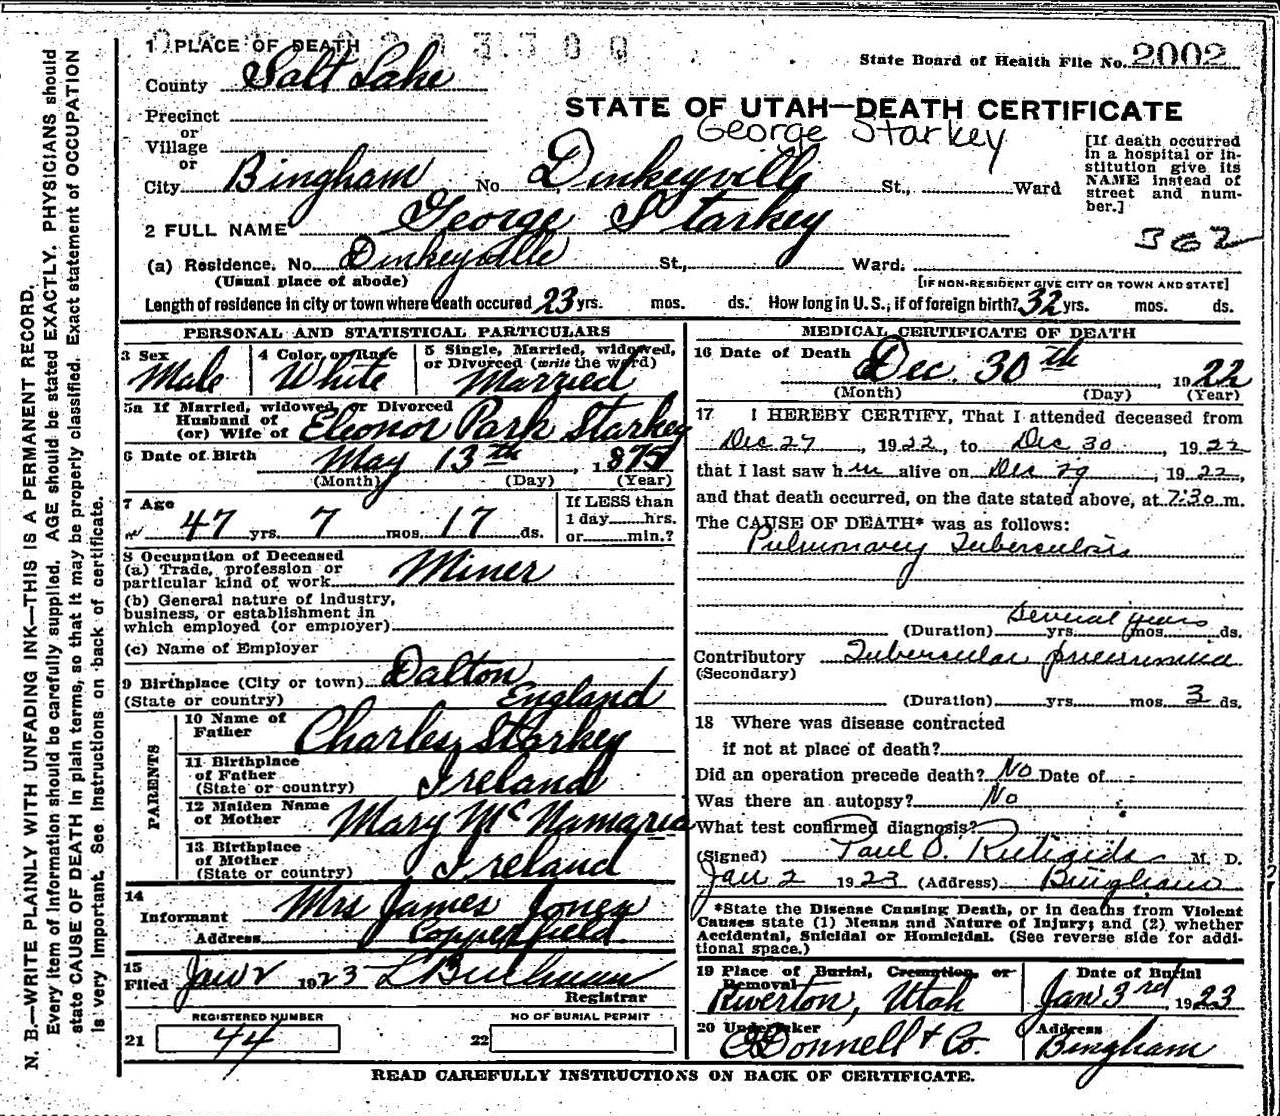 1 PLACE OF DEATH
County Salt Lake
State Board of Health File No. 2002
STATE OF UTAH—DEATH CERTIFICATE
George Starkey
Precinct
or
Village
or
City Bingham No Dinkeyville St., Ward
[If death occurred in a hospital or institution give its NAME instead of street and number.]
2 FULL NAME George Starkey
362
(a) Residence. No. Dinkeyville St., Ward.
(Usual place of abode)
[IF NON-RESIDENT GIVE CITY OR TOWN AND STATE]
Length of residence in city or town where death occured 23 yrs. mos. ds. How long in U.S., if of foreign birth? 32 yrs. mos. ds.
PERSONAL AND STATISTICAL PARTICULARS
3 Sex Male
4 Color or Race White
5 Single, Married, widowed, or Divorced (write the word) Married
5a If Married, widowed, or Divorced
Husband of
(or) Wife of Eleonor Park Starkey
6 Date of Birth May 13th, 1875
(Month) (Day) (Year)
7 Age 47 yrs. 7 mos. 17 ds.
If LESS than
1 day hrs.
or min.?
8 Occupation of Deceased
(a) Trade, profession or
particular kind of work Miner
(b) General nature of industry,
business, or establishment in
which employed (or employer)
(c) Name of Employer
9 Birthplace (City or town) Dalton
(State or country) England
PARENTS
10 Name of Father Charles Starkey
11 Birthplace of Father (State or country) Ireland
12 Maiden Name of Mother Mary McNamaria
13 Birthplace of Mother (State or country) Ireland
14
Informant Mrs James Jones
Address Copperfield
15
Filed Jan 2 1923 L Buchman
Registrar
REGISTERED NUMBER
21 44
NO OF BURIAL PERMIT
22
MEDICAL CERTIFICATE OF DEATH
16 Date of Death Dec. 30th, 1922
(Month) (Day) (Year)
17 I HEREBY CERTIFY, That I attended deceased from
Dec 27, 1922, to Dec 30, 1922
that I last saw him alive on Dec 29, 1922,
and that death occurred, on the date stated above, at 7:30 m.
The CAUSE OF DEATH* was as follows:
Pulmonary Tuberculosis
Several years
(Duration) yrs. mos. ds.
Contributory Tubercular pneumonia
(Secondary)
(Duration) yrs. mos. 3 ds.
18 Where was disease contracted
if not at place of death?
Did an operation precede death? No Date of -
Was there an autopsy? No
What test confirmed diagnosis?
(Signed) Paul S. M. D.
Jan 2 1923 (Address) Bingham
*State the Disease Causing Death, or in deaths from Violent
Causes state (1) Means and Nature of Injury; and (2) whether
Accidental, Suicidal or Homicidal. (See reverse side for addi-
tional space.)
19 Place of Burial, Cremation, or Removal Riverton, Utah
Date of Burial Jan 3rd 1923
20 Undertaker O'Donnell & Co.
Address Bingham
READ CAREFULLY INSTRUCTIONS ON BACK OF CERTIFICATE.
N. B.—WRITE PLAINLY WITH UNFADING INK—THIS IS A PERMANENT RECORD.
Every item of information should be carefully supplied. AGE should be stated EXACTLY. PHYSICIANS should
state CAUSE OF DEATH in plain terms, so that it may be properly classified. Exact statement of OCCUPATION
is very important. See Instructions on back of certificate.